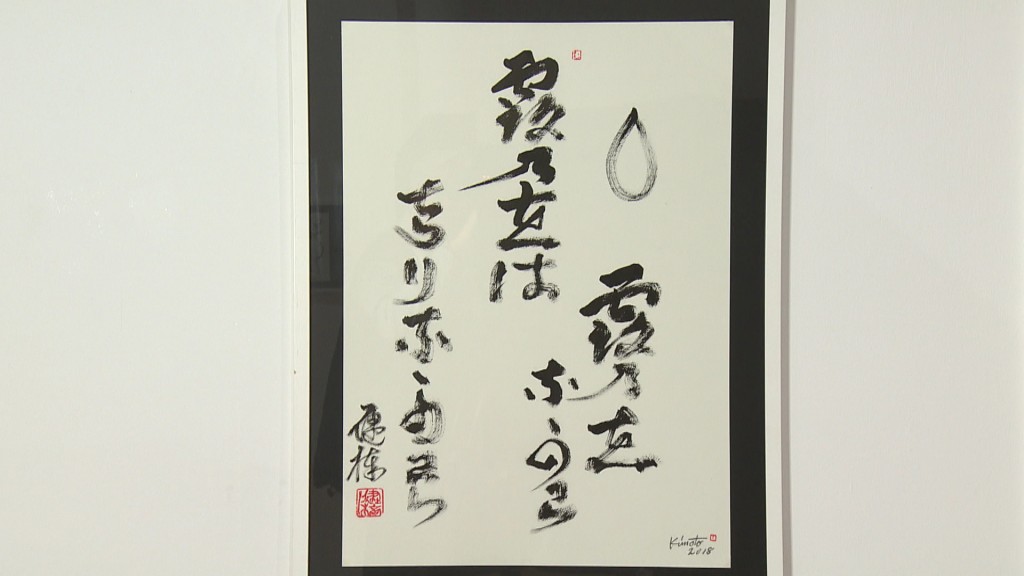 露乃世は
露乃世
ながら
さりながら
Kimoto
2018